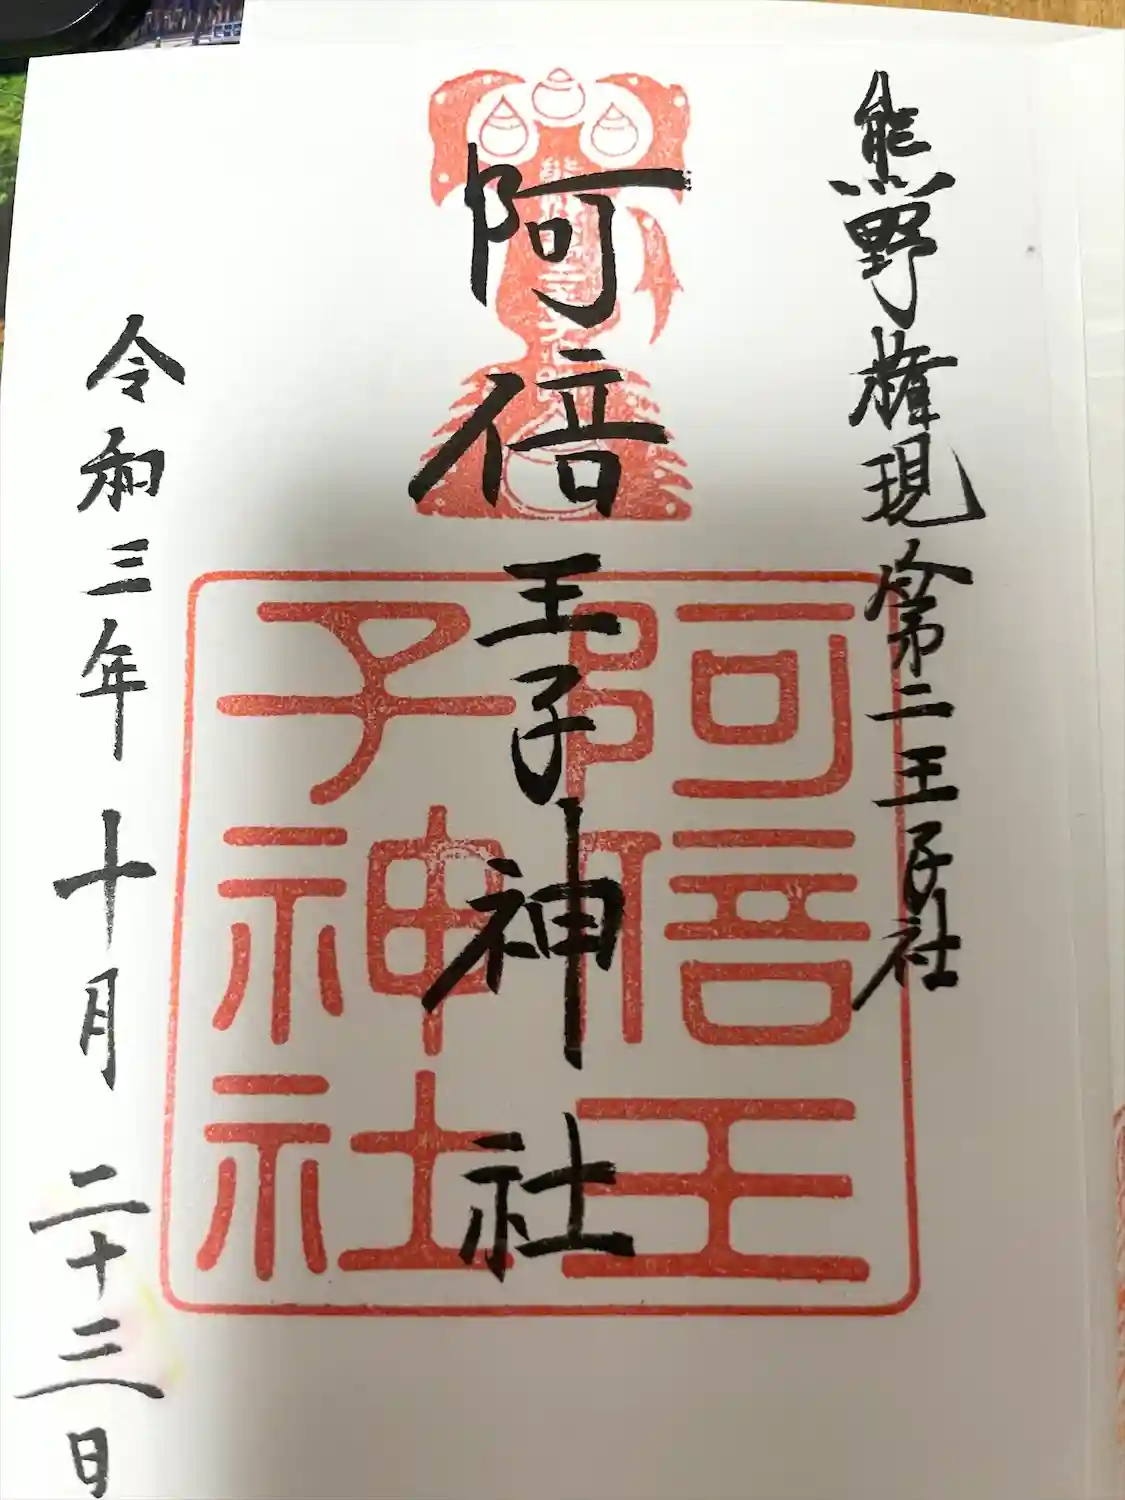 熊野権現第二王子社
阿倍王子神社
阿倍王子神社
令和三年十月二十三日